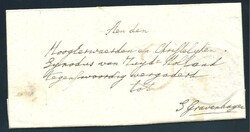 Aen den
Hoogleerwaarden en Christelyken
Synodus van Zuyd-Holland
tegenswoordig vergadert
tot
S'Gravenhagen